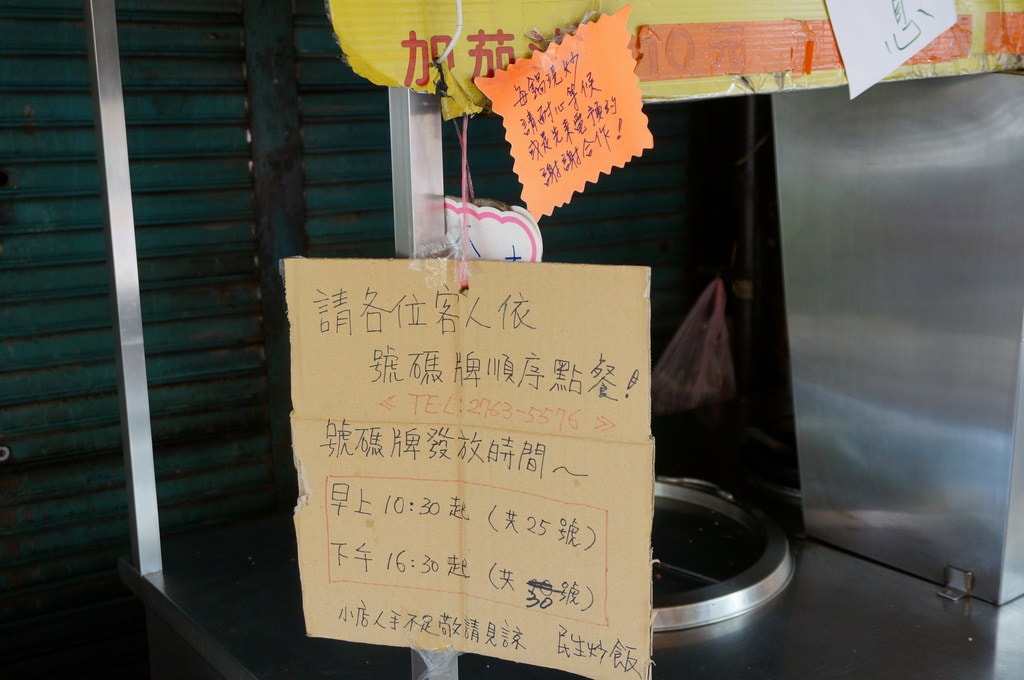 加茄
10元
息
每鍋現炒
請耐心等候
或是先來電預約
謝謝合作!
請各位客人依
號碼牌順序點餐!
《 TEL:2763-5576 》
號碼牌發放時間~
早上 10:30起 (共25號)
下午 16:30起 (共 30號)
小店人手不足敬請見諒 民生炒飯